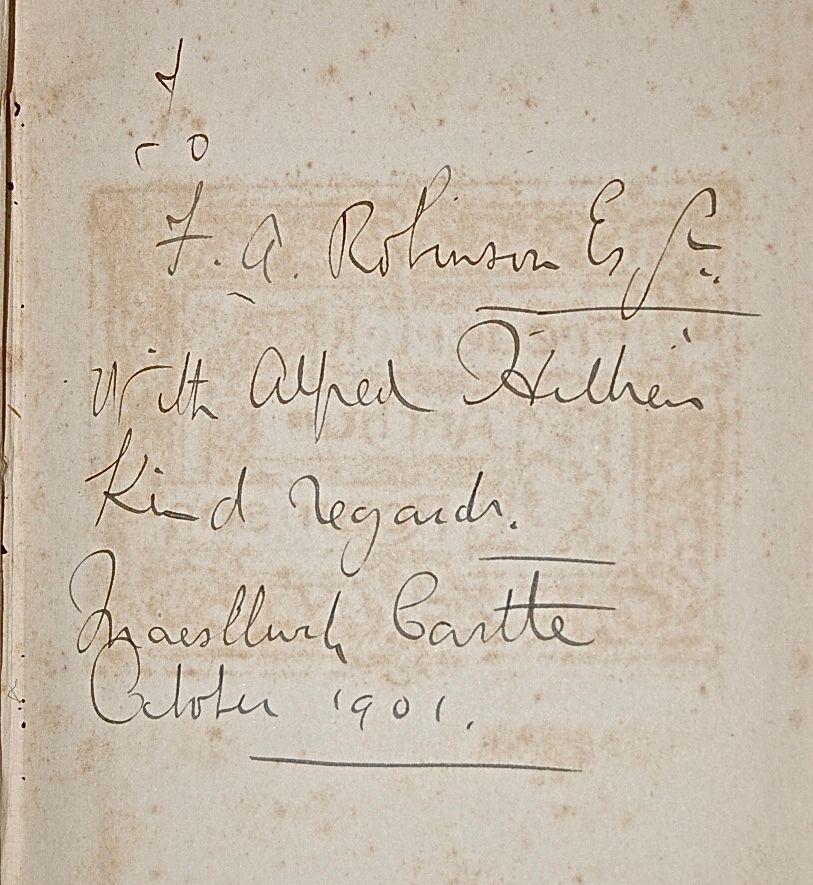 To
F. A. Robinson Esqr.
With Alfred Hillier's
Kind regards.
Maesllwch Castle
October 1901.